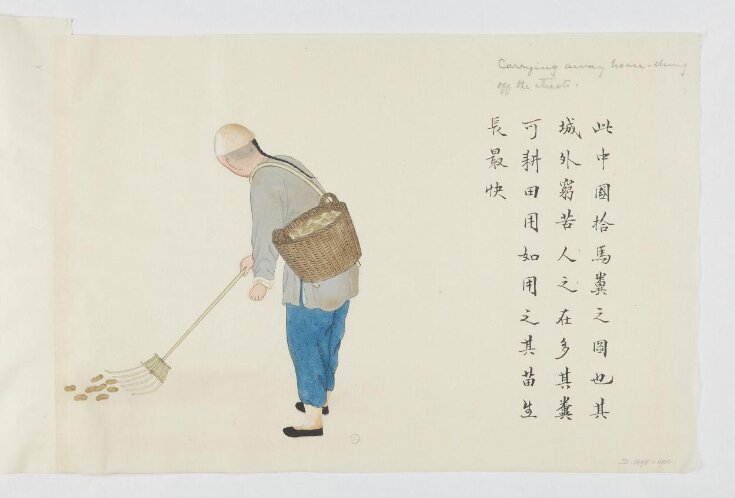 Carrying away horse-dung
off the streets.
此中國拾馬糞之圖也其
城外窮苦人之在多其糞
可耕田用如用之其苗生
長最快